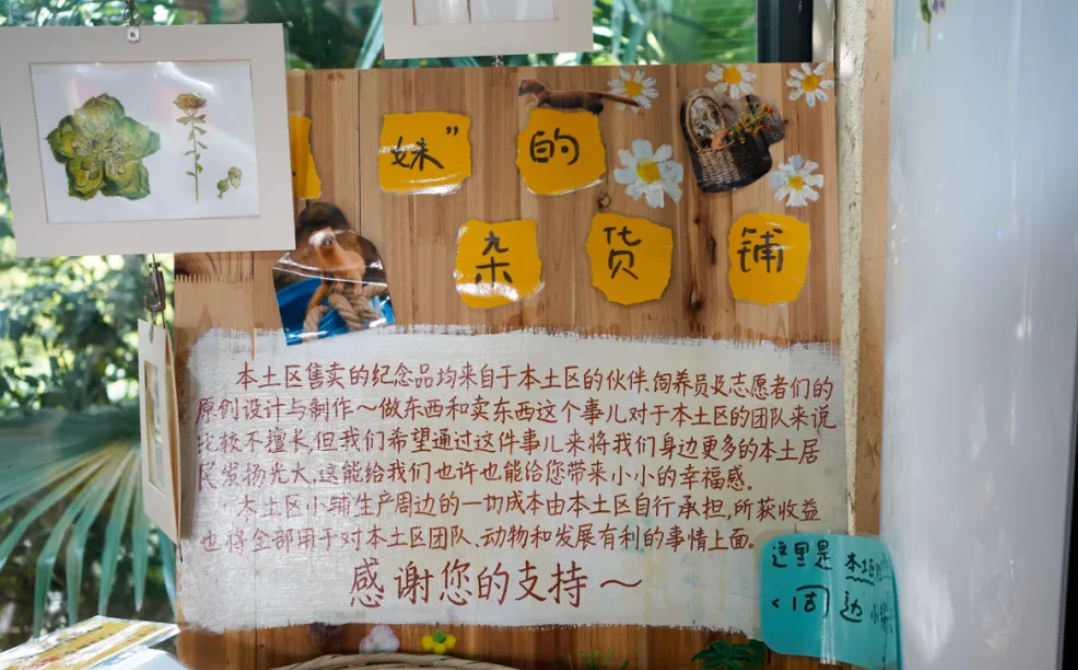 妹”的
杂货铺
本土区售卖的纪念品均来自于本土区的伙伴、饲养员及志愿者们的
原创设计与制作～做东西和卖东西这个事儿对于本土区的团队来说
比较不擅长,但我们希望通过这件事儿来将我们身边更多的本土居
民发扬光大,这能给我们也许也能给您带来小小的幸福感.
本土区小铺生产周边的一切成本由本土区自行承担,所获收益
也将全部用于对本土区团队、动物和发展有利的事情上面。
感谢您的支持～
这里是 本土区
周边